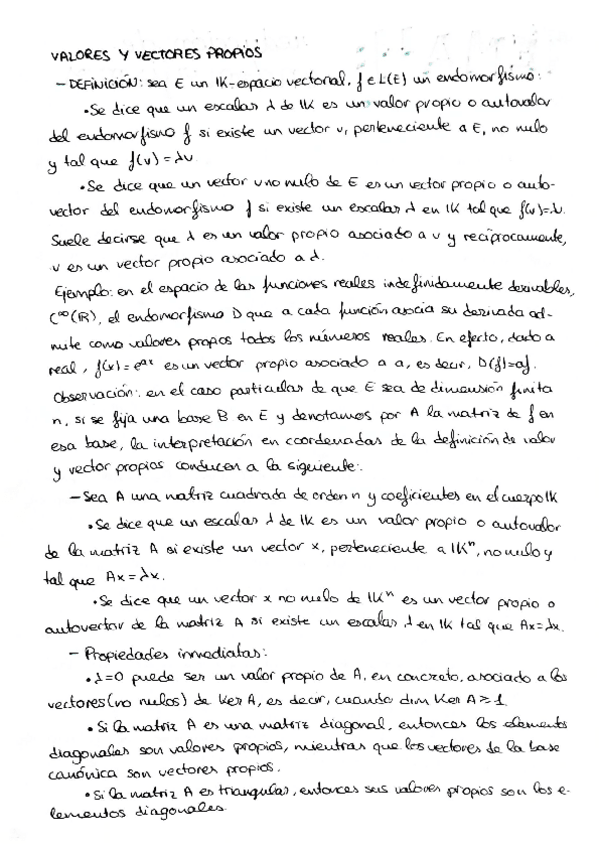 VALORES Y VECTORES PROPIOS
- DEFINICIÓN: sea E un IK-espacio vectorial, f ∈ L(E) un endomorfismo:
• Se dice que un escalar λ de IK es un valor propio o autovalor
del endomorfismo f si existe un vector v, perteneciente a E, no nulo
y tal que f(v) = λv
• Se dice que un vector v no nulo de E es un vector propio o auto-
vector del endomorfismo f si existe un escalar λ en IK tal que f(v)=λv.
Suele decirse que λ es un valor propio asociado a v y recíprocamente,
v es un vector propio asociado a λ.
Ejemplo: en el espacio de las funciones reales indefinidamente derivables,
C^∞(IR), el endomorfismo D que a cada función asocia su derivada ad-
mite como valores propios todos los números reales. En efecto, dado a
real, f(x) = e^ax es un vector propio asociado a a, es decir, D(f)=af.
Observación: en el caso particular de que E sea de dimensión finita
n, si se fija una base B en E y denotamos por A la matriz de f en
esa base, la interpretación en coordenadas de la definición de valor
y vector propios conducen a la siguiente:
- Sea A una matriz cuadrada de orden n y coeficientes en el cuerpo IK
• Se dice que un escalar λ de IK es un valor propio o autovalor
de la matriz A si existe un vector x, perteneciente a IK^n, no nulo y
tal que Ax = λx.
• Se dice que un vector x no nulo de IK^n es un vector propio o
autovector de la matriz A si existe un escalar λ en IK tal que Ax=λx.
- Propiedades inmediatas:
• λ=0 puede ser un valor propio de A, en concreto, asociado a los
vectores (no nulos) de Ker A, es decir, cuando dim Ker A ≥ 1
• Si la matriz A es una matriz diagonal, entonces los elementos
diagonales son valores propios, mientras que los vectores de la base
canónica son vectores propios.
• Si la matriz A es triangular, entonces sus valores propios son los e-
lementos diagonales.